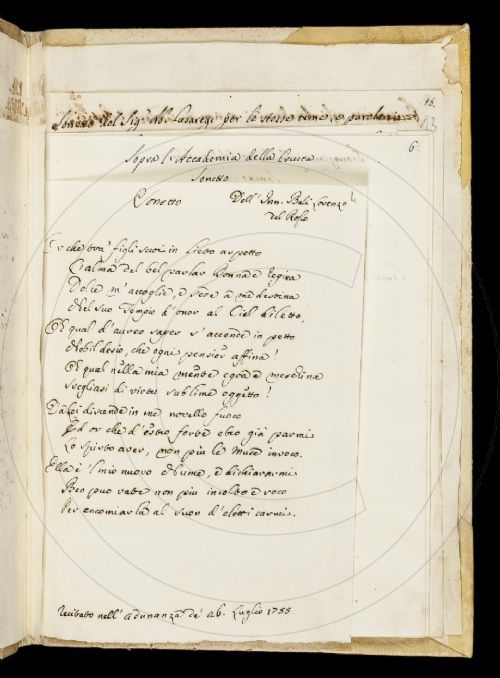 16.
Sonetto del Sig.r Ab. Casaregi per le stesse rime, e parole
13
6
Sopra l'Accademia della Crusca
Sonetto
Sonetto Dell' Inn. Balì Lorenzo
del Rosso
Or che tra' figli suoi in lieto aspetto
L'alma del bel parlar Donna e Regina
Dolce m' accoglie, e sede a me destina
Nel suo Tempio d'onor al Ciel diletto,
Oh qual d'aureo saper s' accende in petto
Nobil desio, che ogni pensier affina!
Oh qual nella mia mente egra e meschina
svegliasi di virtù sublime oggetto!
Da Lei discende in me novello fuoco
Ed or che d'estro forte ebro già parmi
Lo spirto aver, non più le Muse invoco.
Ella è 'l mio nuovo Nume, e dichiararmi
Ben può vate non più incolto e roco
Per encomiarla al suon d'eletti carmi.
Recitato nell' adunanza de' 26. Luglio 1755